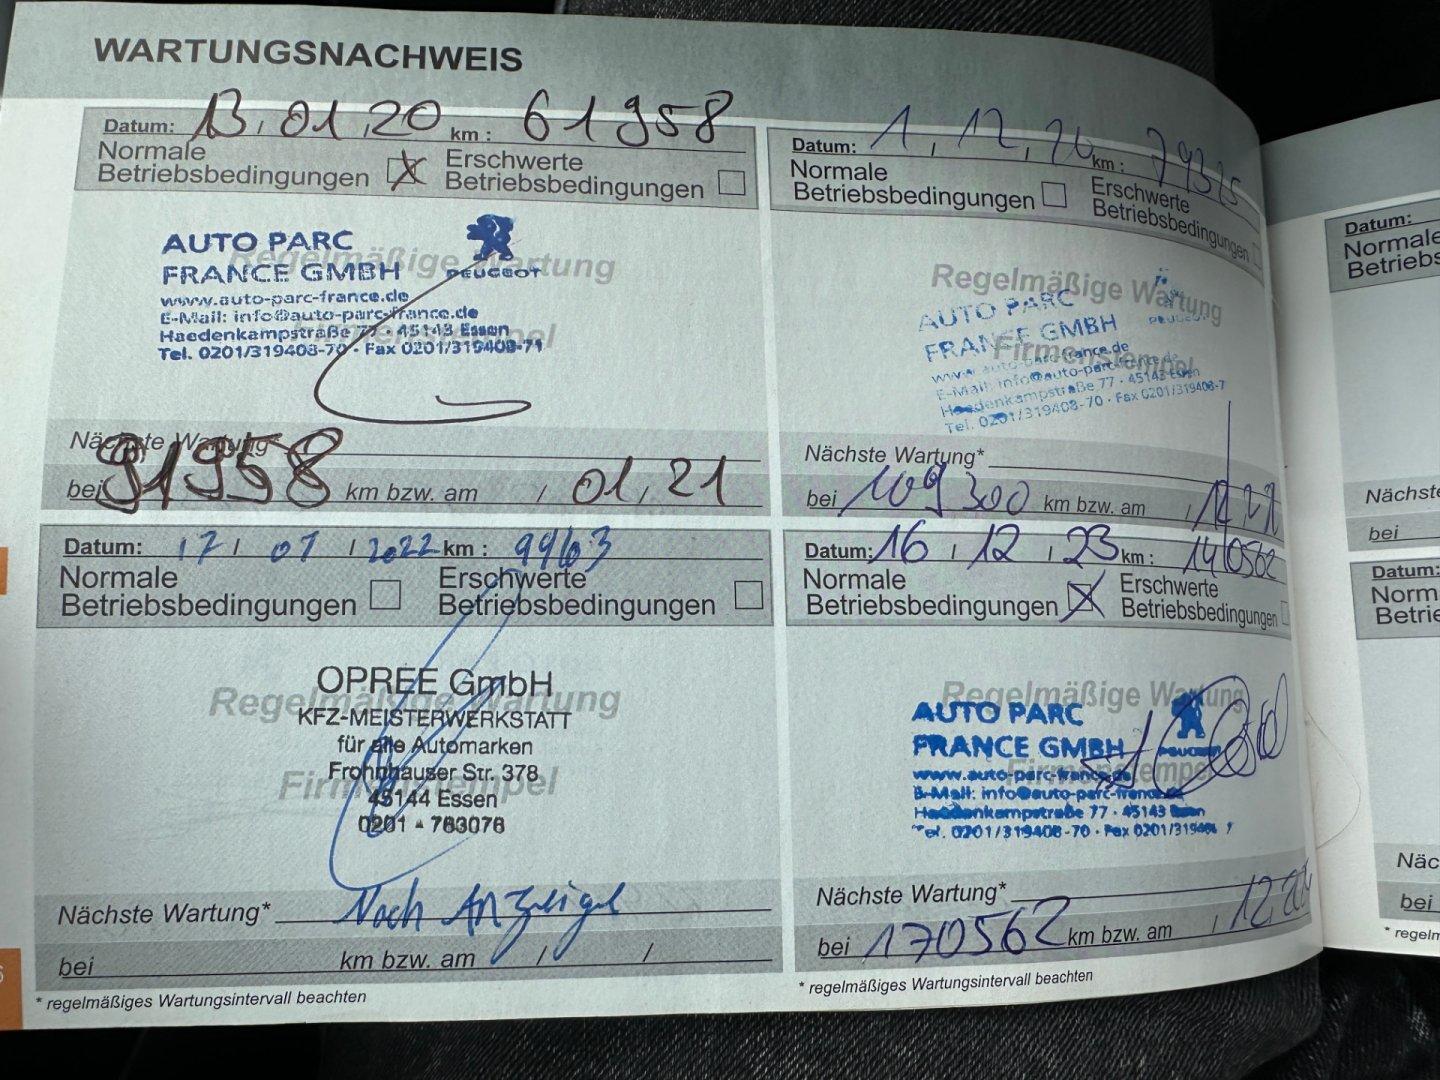 WARTUNGSNACHWEIS
Datum: 13.01.20 km: 61958
Normale Betriebsbedingungen
Erschwerte Betriebsbedingungen
Regelmäßige Wartung
Firmenstempel
AUTO PARC
FRANCE GMBH
PEUGEOT
www.auto-parc-france.de
E-Mail: info@auto-parc-france.de
Haedenkampstraße 77 · 45143 Essen
Tel. 0201/319408-70 · Fax 0201/319408-71
Nächste Wartung*
bei 91958 km bzw. am / 01.21
Datum: 1.12. km: 79325
Normale Betriebsbedingungen
Erschwerte Betriebsbedingungen
Regelmäßige Wartung
Firmenstempel
AUTO PARC
FRANCE GMBH
PEUGEOT
www.auto-parc-france.de
E-Mail: info@auto-parc-france.de
Haedenkampstraße 77 · 45143 Essen
Tel. 0201/319408-70 · Fax 0201/319408-7
Nächste Wartung*
bei 109300 km bzw. am /
Datum: 17/07/2022 km:
Normale Betriebsbedingungen
Erschwerte Betriebsbedingungen
Regelmäßige Wartung
Firmenstempel
OPREE GmbH
KFZ-MEISTERWERKSTATT
für alle Automarken
Frohnhauser Str. 378
45144 Essen
0201 - 763076
Nächste Wartung* Nach Anzeige
bei km bzw. am / /
* regelmäßiges Wartungsintervall beachten
Datum: 16/12/23 km: 140562
Normale Betriebsbedingungen
Erschwerte Betriebsbedingungen
Regelmäßige Wartung
Firmenstempel
AUTO PARC
FRANCE GMBH
PEUGEOT
www.auto-parc-france.de
E-Mail: info@auto-parc-france.de
Haedenkampstraße 77 · 45143 Essen
Tel. 0201/319408-70 · Fax 0201/319408 7
Nächste Wartung*
bei 170562 km bzw. am / 12.
* regelmäßiges Wartungsintervall beachten
Datum:
Normale
Betriebs
Nächst
bei
Datum:
Norm
Betrie
Näc
bei
* regelm